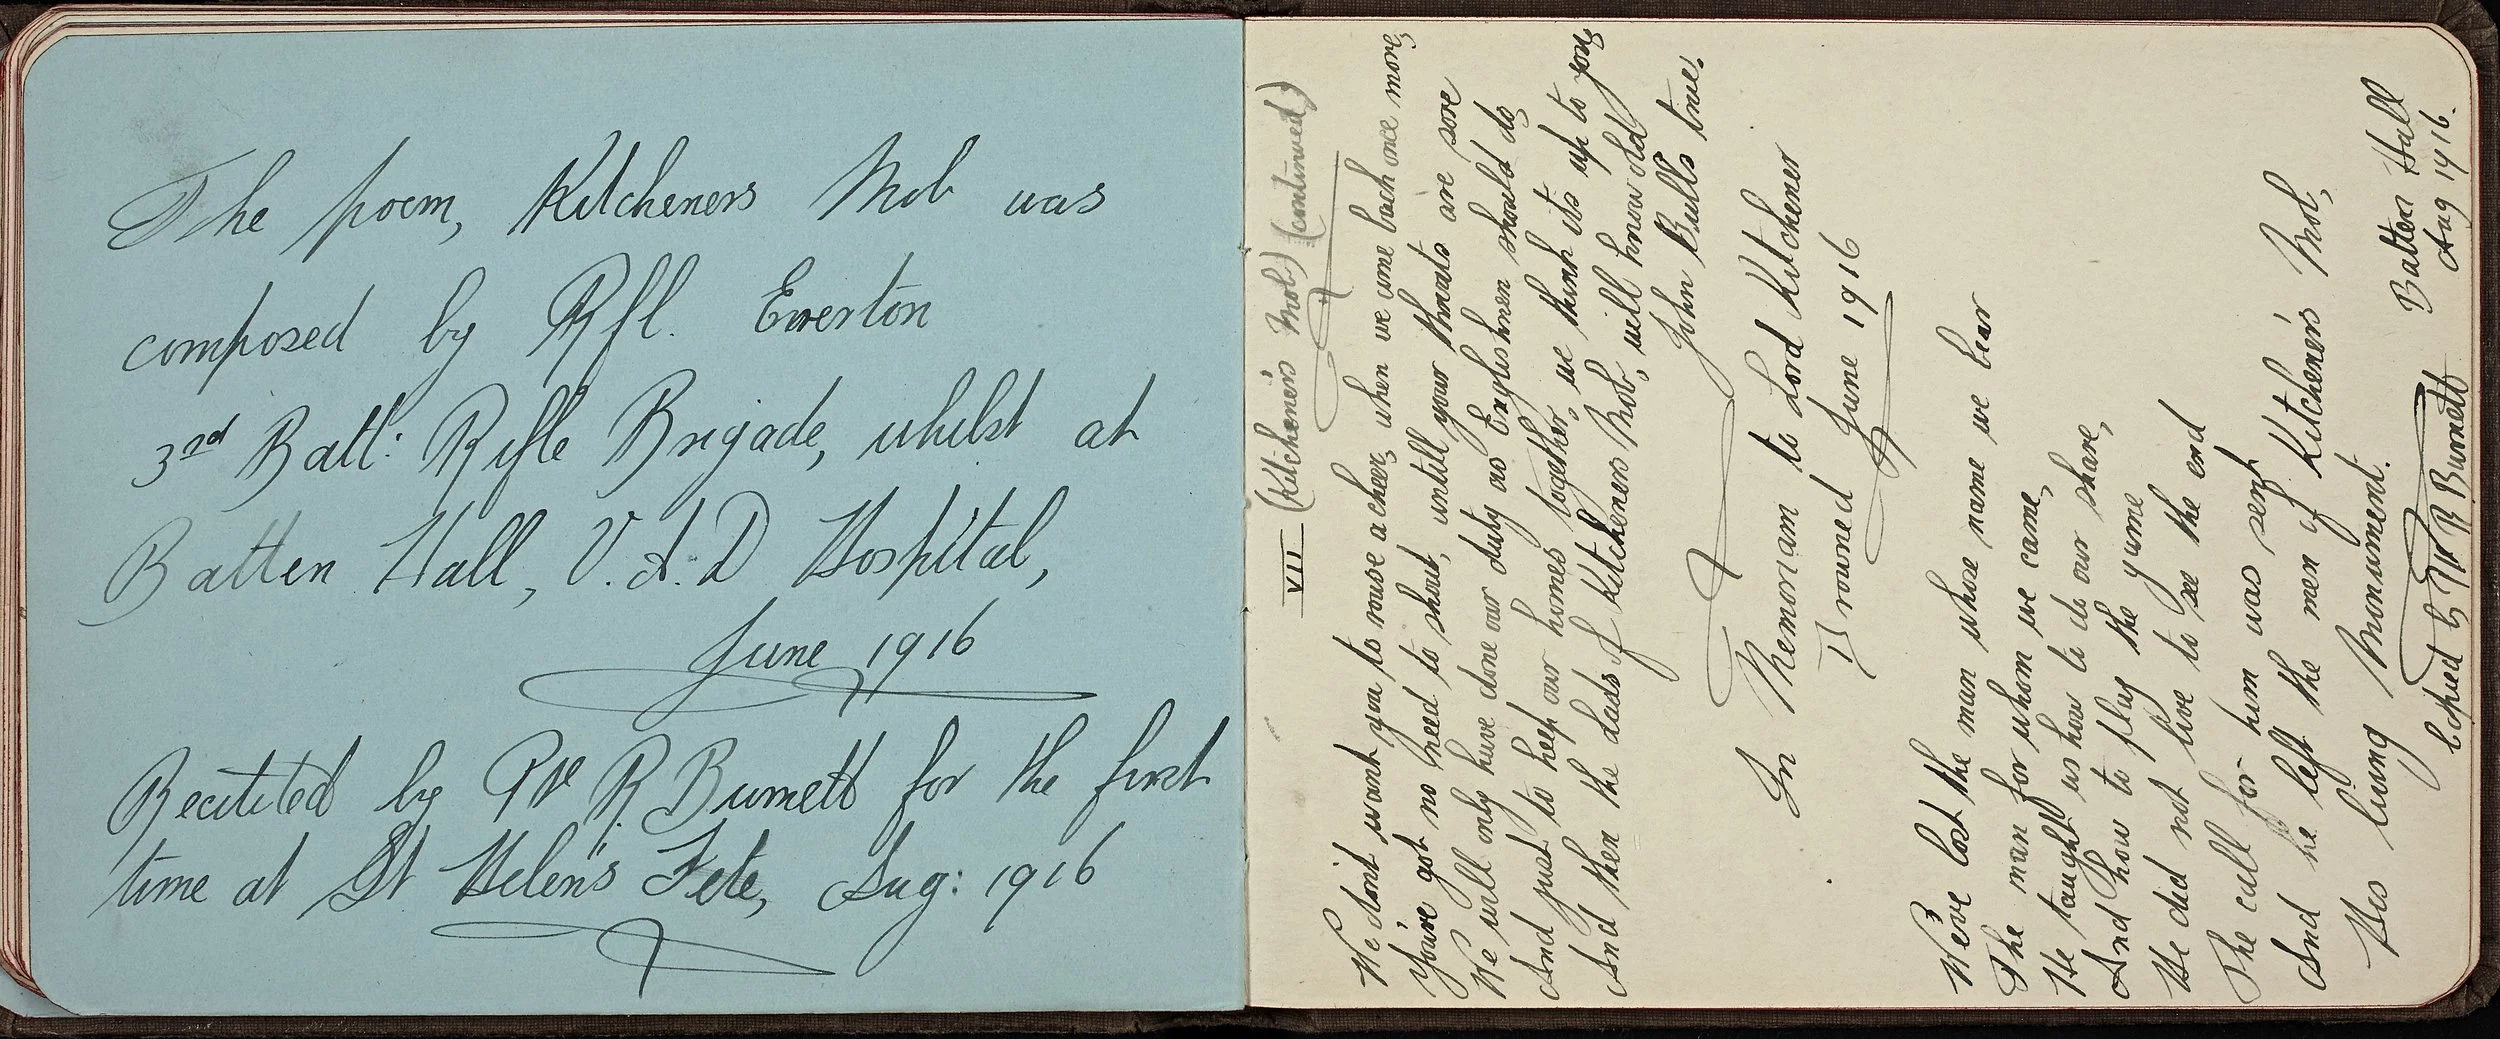 The poem, Kitcheners Mob was
composed by Rfl. Everton
3rd Batt: Rifle Brigade, whilst at
Batten Hall, V.A.D Hospital,
June 1916
Recitited by Pte R. Burnett for the first
time at St Helen's Fete, Aug: 1916
VII (Kitchener's Mob) (continued)
We dont want you to rouse a cheer, when we come back once more,
You've got no need to shout, untill your throats are sore
We will only have done our duty as Englishmen should do,
And just to keep our homes together, we think its up to you,
And then the Lads of Kitcheners Mob, will know old
John Bulls true.
In Memoriam to Lord Kitchener
Drowned June 1916
We've lost the man whose name we bear
The man for whom we came,
He taught us how to do our share,
And how to play the game
He did not live to see the end
The call for him was sent
And he left the men of Kitchener's Mob,
His living Monument.
Copied by Pte R Burnett Batten Hall
Aug 1916.